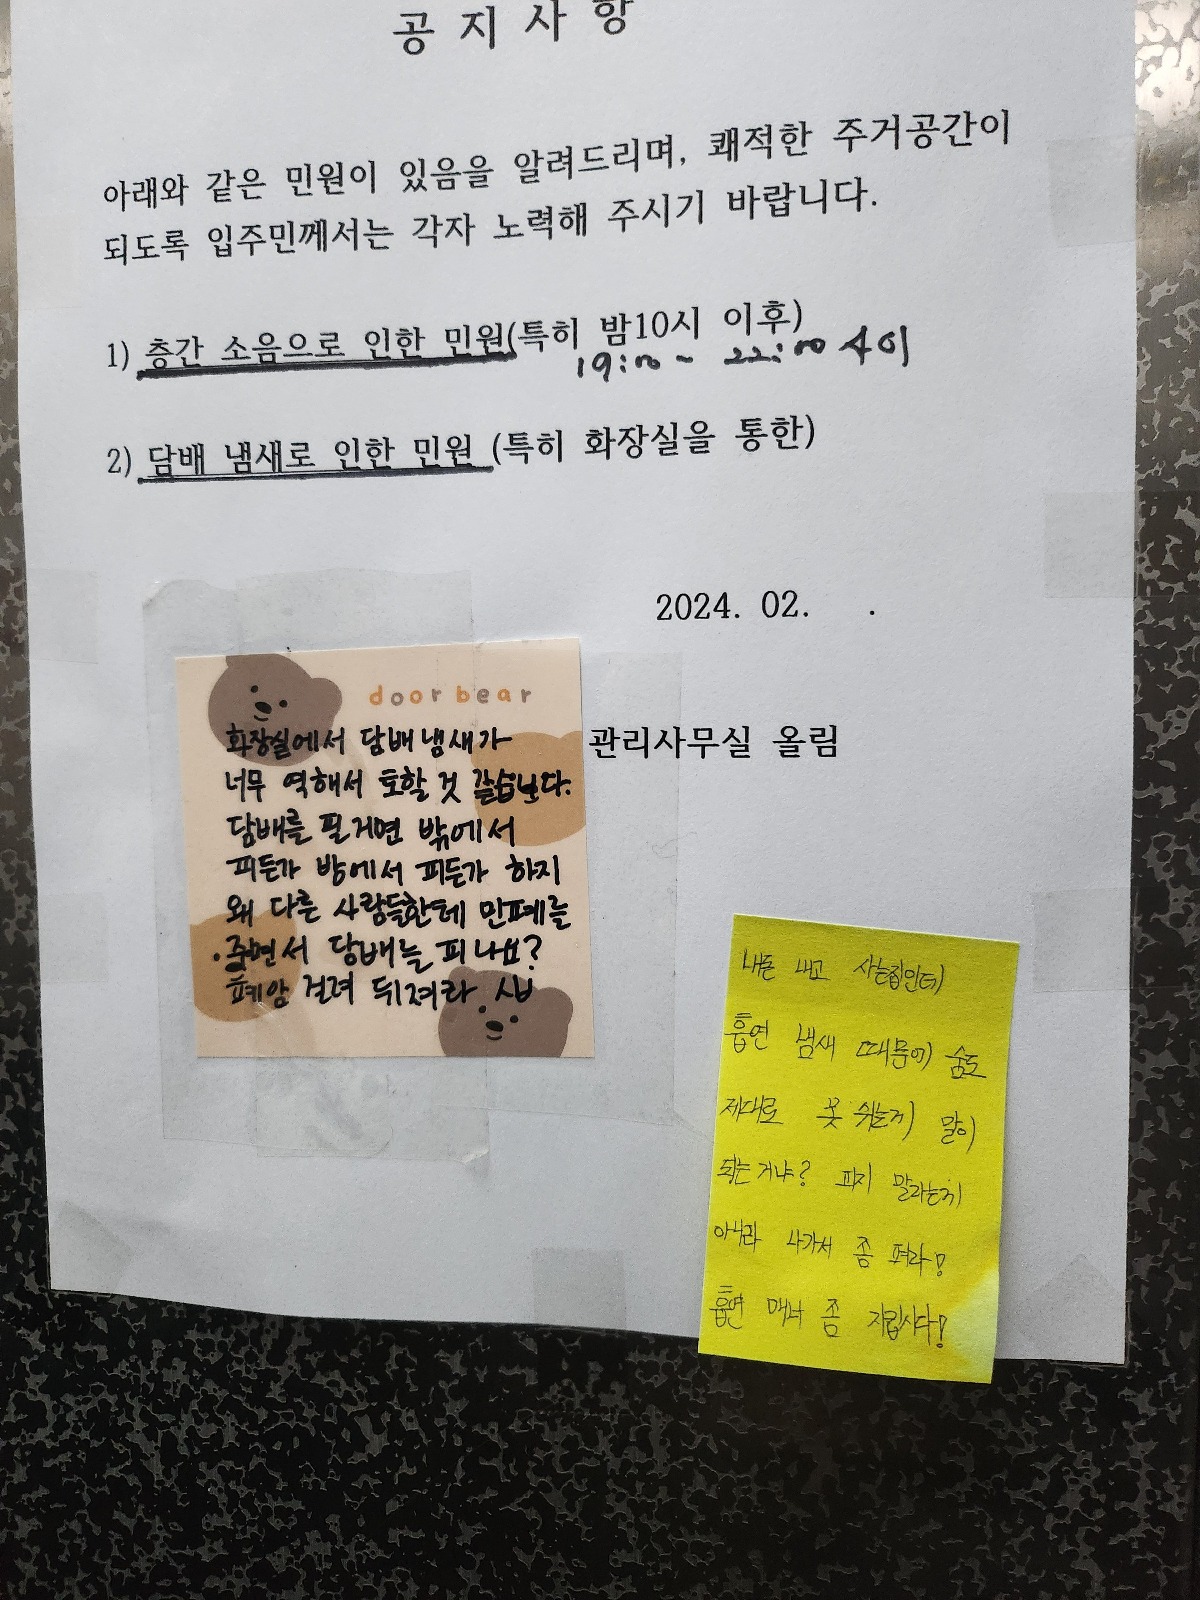 공 지 사 항
아래와 같은 민원이 있음을 알려드리며, 쾌적한 주거공간이
되도록 입주민께서는 각자 노력해 주시기 바랍니다.
1) 층간 소음으로 인한 민원(특히 밤10시 이후)
19:00~ 22:00 사이
2) 담배 냄새로 인한 민원 (특히 화장실을 통한)
2024. 02. .
관리사무실 올림
door bear
화장실에서 담배냄새가
너무 역해서 토할 것 같습니다.
담배를 필거면 밖에서
피든가 방에서 피든가 하지
왜 다른 사람들한테 민폐를
주면서 담배를 피나요?
폐암 걸려 뒤져라 시ㅂ
내돈 내고 사는집인데
흡연 냄새 때문에 숨도
제대로 못 쉬는게 말이
되는거냐? 피지 말라는게
아니라 나가서 좀 펴라!
흡연 매너 좀 지킵시다!